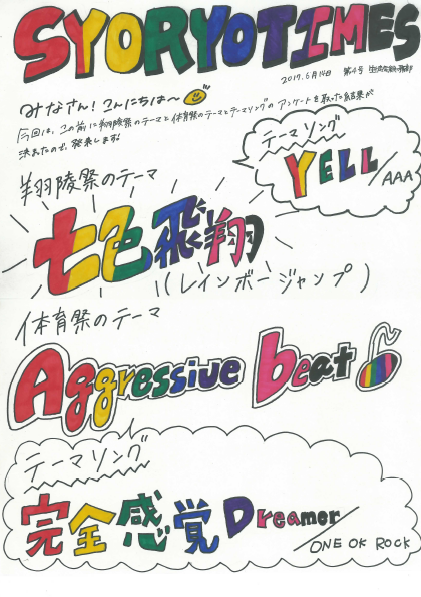 SYORYOTIMES
2017.6月14日 第4号 生徒会総務部
みなさん!こんにちは〜
今回は、この前に翔羽陵祭のテーマと体育祭のテーマとテーマソングのアンケートを取った結果が
決まったので、発表します!
テーマソング
YELL/AAA
翔陵祭のテーマ
七色飛翔
(レインボージャンプ)
体育祭のテーマ
Aggressive beat
テーマソング
完全感覚Dreamer/
ONE OK ROCK